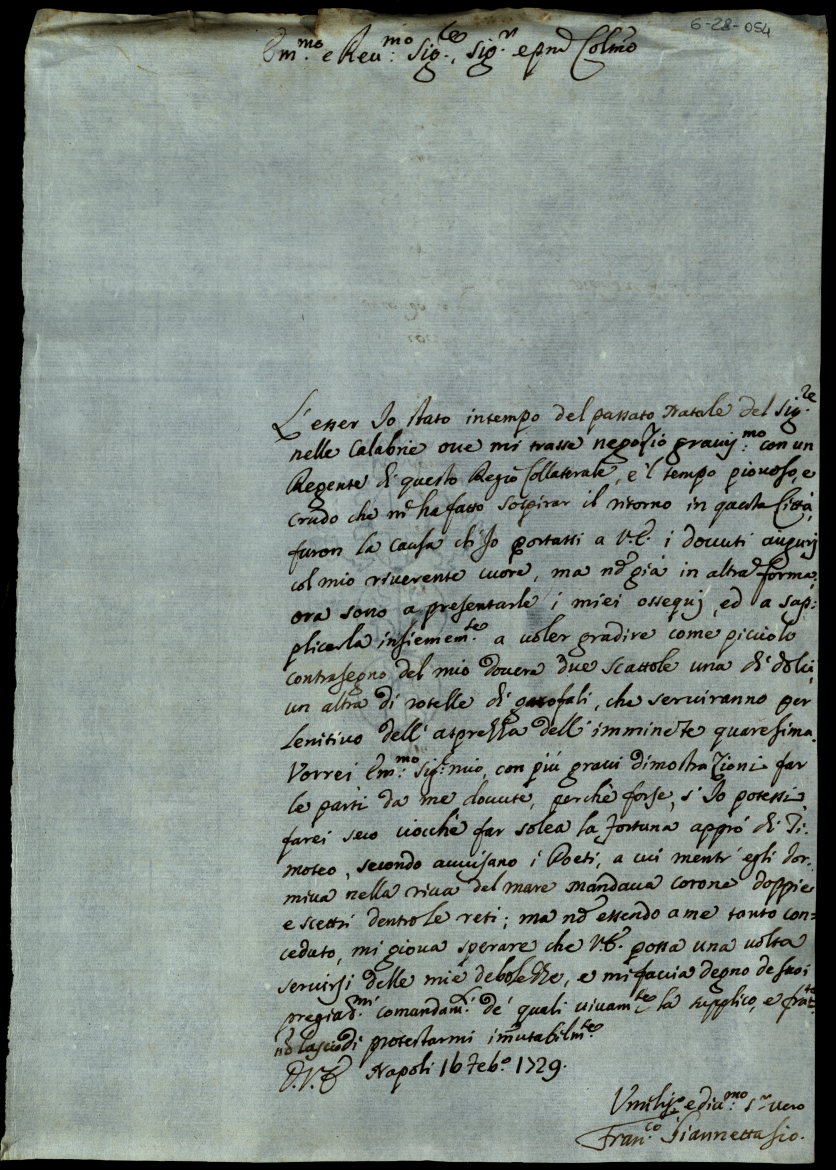 6-28-054
Em.mo e Reu.mo Sig.re, Sig.r e pnē Colmō
L'esser Io stato in tempo del passato Natale del Sig.re
nelle Calabrie oue mi trasse negozio grauis.mo con un
Regente di questo Regio Collaterale, e 'l tempo piouoso, e
crudo che m' ha fatto sospirar il ritorno in questa Città,
furon la causa ch' Io portassi a V.E. i douuti augurj
col mio riuerente cuore, ma nō già in altra forma;
ora sono a presentarle i miei ossequj, ed a sup:
plicarla insiemem.te a uoler gradire come picciolo
contrasegno del mio douere due scattole una di dolci,
un altra di rotelle di garofali, che seruiranno per
lenitiuo dell' asprezza dell' imminēte quaresima.
Vorrei Em.mo Sig.r mio, con più graui dimostrazioni far
le parti da me douute, perchè forse, s' Io potessi,
farei seco ciocchè far solea la Fortuna appró di Ti:
moteo, secondo auuisano i Poeti, a cui mentr' egli dor:
miua nella riua del mare mandaua corone doppie
e scettri dentro le reti; ma nō essendo a me tanto con:
ceduto, mi gioua sperare che V.E. possa una uolta
seruirsi delle mie debolezze, e mi faccia degno de suoi
pregiad.mi comandam.ti de' quali uiuam.te la supplico, e frat.to
nō lascio di protestarmi imutabilm.te
D.V.E. Napoli 16 Feb.o 1729.
Vmilis.o e diu.mo s.r uero
Fran.co Giannettasio.